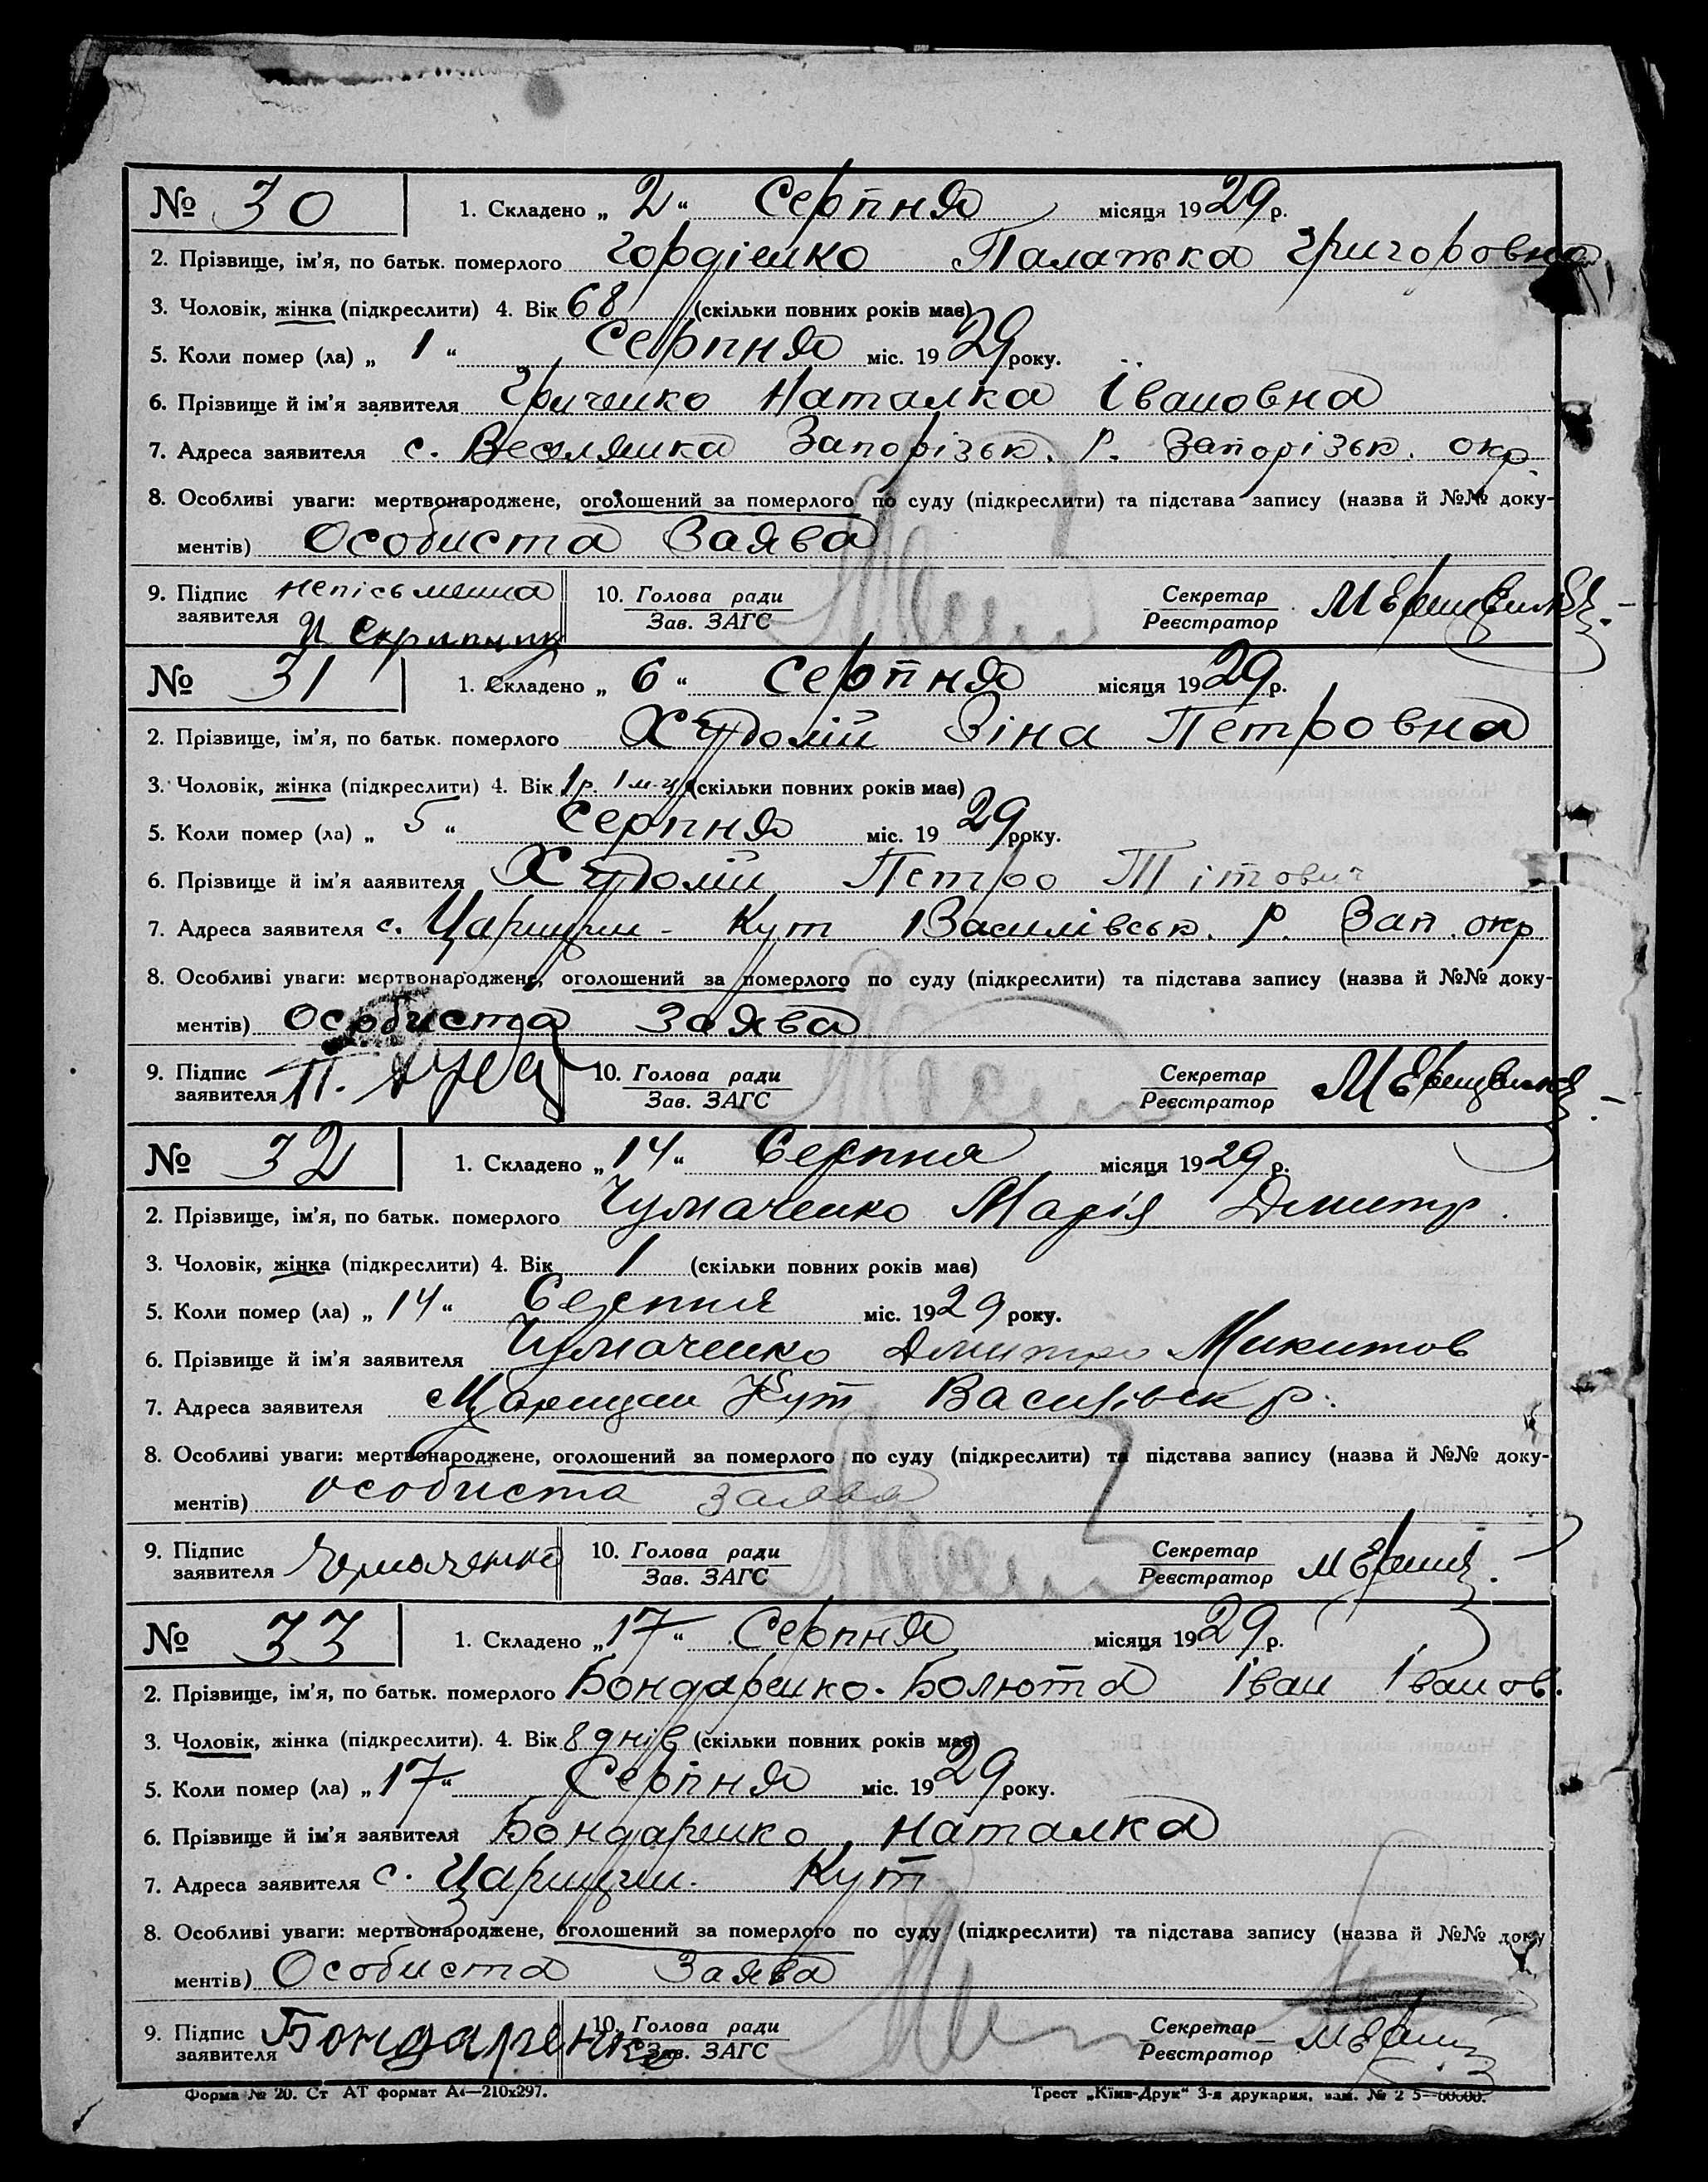 № 30 1. Складено „ 2 “ Серпня місяця 1929 р.
2. Прізвище, ім’я, по батьк. померлого Гордієнко Палажка Григоровна
3. Чоловік, жінка (підкреслити) 4. Вік 68 (скільки повних років має)
5. Коли помер (ла) „ 1 “ Серпня міс. 1929 року.
6. Прізвище й ім’я заявителя Гриченко Наталка Івановна
7. Адреса заявителя с. Веселянка Запорізьк. Р. Запорізьк. окр.
8. Особливі уваги: мертвонароджене, оголошений за померлого по суду (підкреслити) та підстава запису (назва й №№ доку-
ментів) Особиста Заява
9. Підпис непісьменна 10. Голова ради Секретар
заявителя Зав. ЗАГС Реєстратор
№ 31 1. Складено „ 6 “ Серпня місяця 1929 р.
2. Прізвище, ім’я, по батьк. померлого Худолій Зіна Петровна
3. Чоловік, жінка (підкреслити) 4. Вік 1 р. 1 м-ц (скільки повних років має)
5. Коли помер (ла) „ 5 “ Серпня міс. 1929 року.
6. Прізвище й ім’я ааявителя Худолій Петро Тітович
7. Адреса заявителя с. Царицин - Кут Василівськ. Р. Зап. окр
8. Особливі уваги: мертвонароджене, оголошений за померлого по суду (підкреслити) та підстава запису (назва й №№ доку-
ментів) Особиста Заява
9. Підпис 10. Голова ради Секретар
заявителя П. Зав. ЗАГС Реєстратор
№ 32 1. Складено „ 14 “ Серпня місяця 1929 р.
2. Прізвище, ім’я, по батьк. померлого Чумаченко Марія Дмитр.
3. Чоловік, жінка (підкреслити) 4. Вік 1 (скільки повних років має)
5. Коли помер (ла) „ 14 “ Серпня міс. 1929 року.
6. Прізвище й ім’я заявителя Чумаченко Дмитро Микитов
7. Адреса заявителя с Царицин Кут Василівск р.
8. Особливі уваги: мертвонароджене, оголошений за померлого по суду (підкреслити) та підстава запису (назва й №№ доку-
ментів) особиста заява
9. Підпис 10. Голова ради Секретар
заявителя Чумаченко Зав. ЗАГС Реєстратор
№ 33 1. Складено „ 17 “ Серпня місяця 1929 р.
2. Прізвище, ім’я, по батьк. померлого Бондаренко-Болюта Іван Іванов.
3. Чоловік, жінка (підкреслити). 4. Вік 8 днів (скільки повних років має)
5. Коли помер (ла) „ 17 “ Серпня міс. 1929 року.
6. Прізвище й ім’я заявителя Бондаренко Наталка
7. Адреса заявителя с. Царицин. Кут
8. Особливі уваги: мертвонароджене, оголошений за померлого по суду (підкреслити) та підстава запису (назва й №№ доку
ментів) Особиста Заява
9. Підпис Бондаренко 10. Голова ради Секретар
заявителя Зав. ЗАГС Реєстратор
Форма № 20. Ст АТ формат А4—210х297. Трест „Київ-Друк“ 3-я друкарня, зам. №